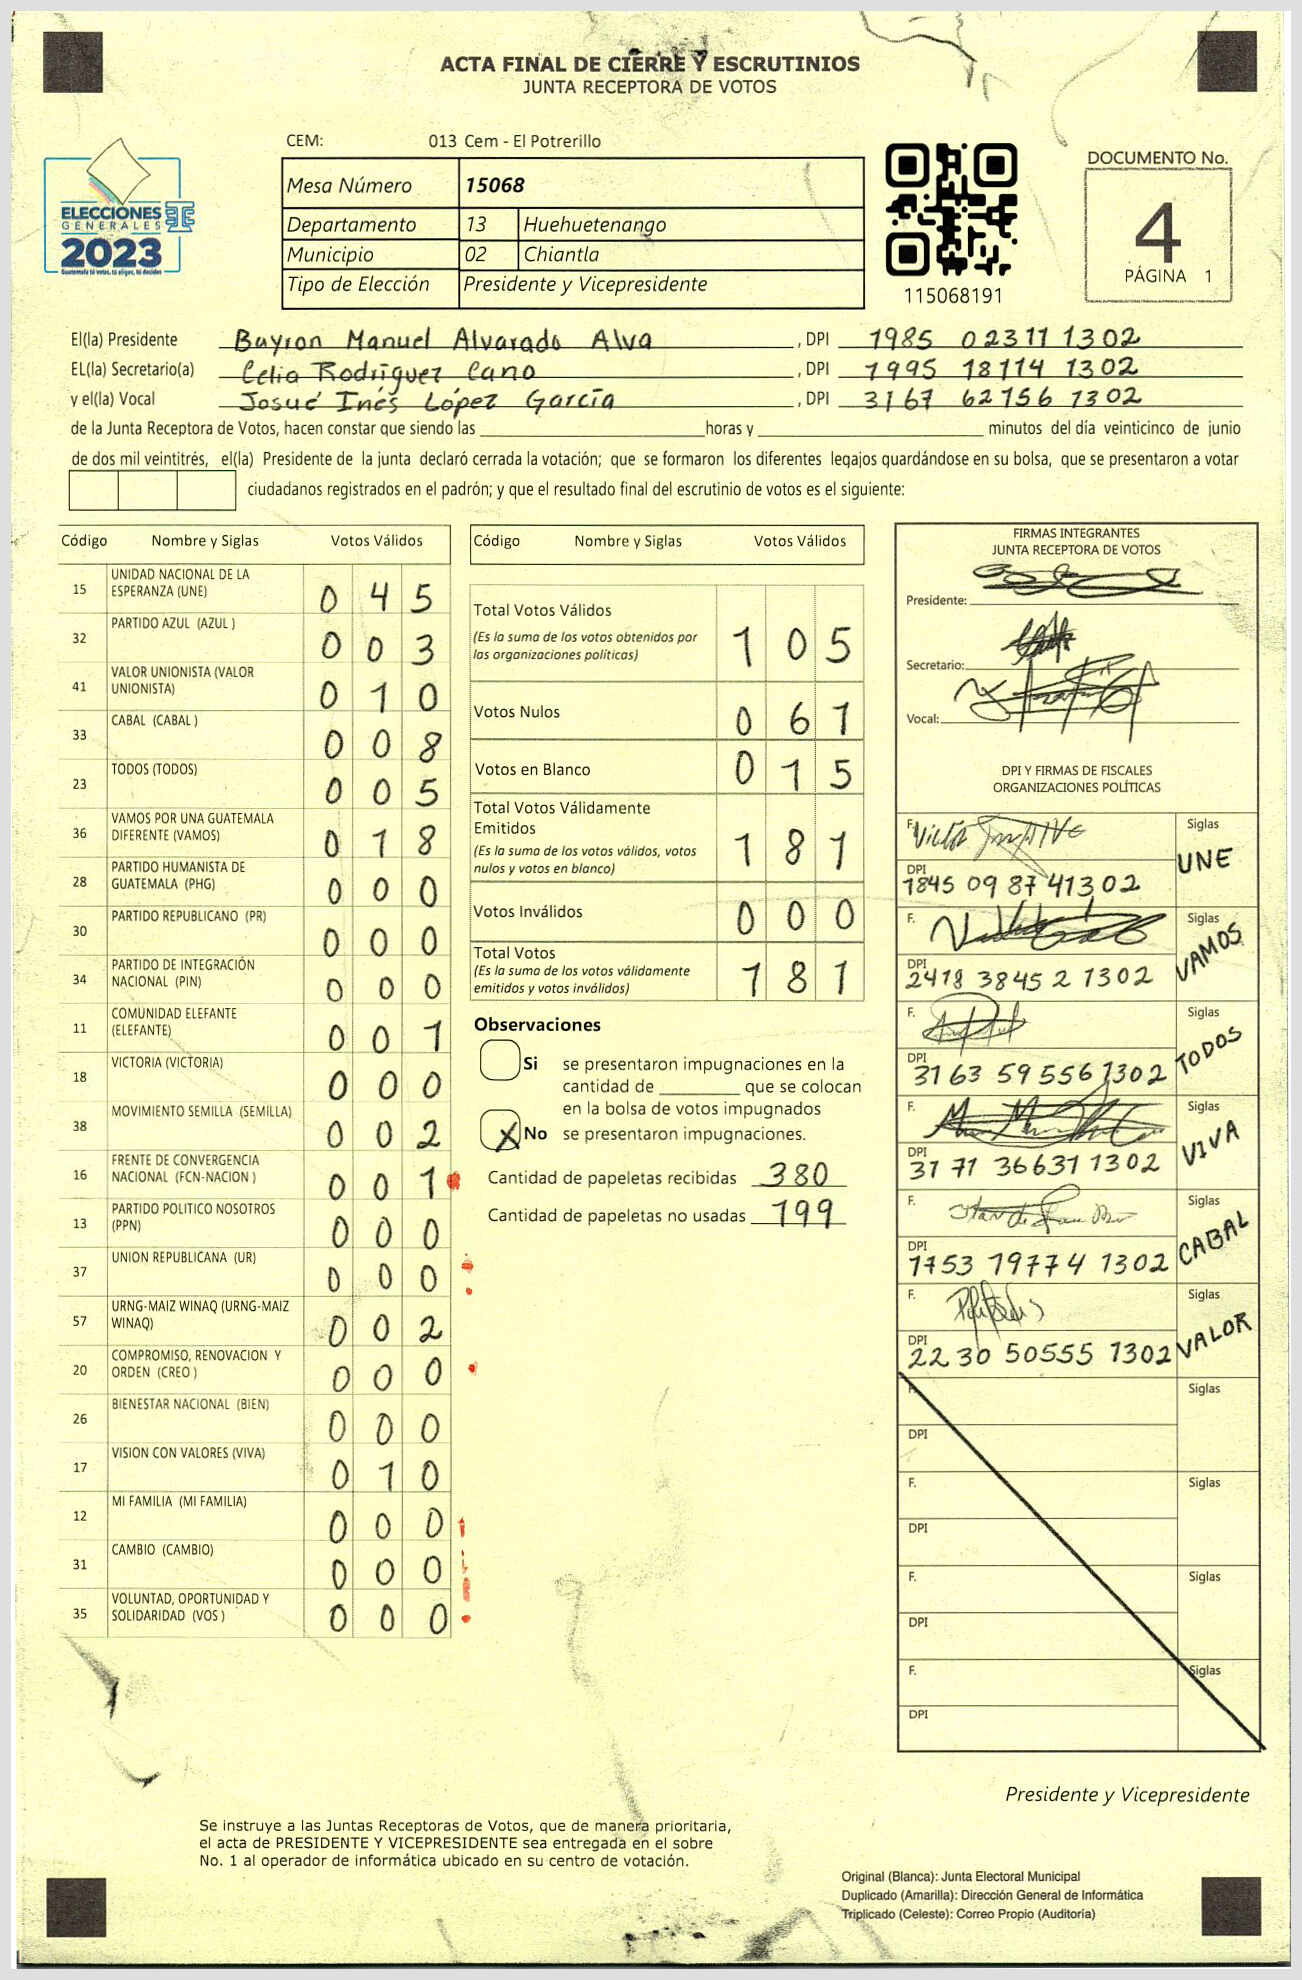 ACTA FINAL DE CIERRE Y ESCRUTINIOS
JUNTA RECEPTORA DE VOTOS
CEM: 013 Cem - El Potrerillo
ELECCIONES
GENERALES
2023
Guatemala tú votas, tú eliges, tú decides
Mesa Número 15068
Departamento 13 Huehuetenango
Municipio 02 Chiantla
Tipo de Elección Presidente y Vicepresidente
115068191
DOCUMENTO No.
4
PÁGINA 1
El(la) Presidente Bayron Manuel Alvarado Alva , DPI 1985 02311 1302
EL(la) Secretario(a) Celia Rodríguez Cano , DPI 1995 18114 1302
y el(la) Vocal Josué Inés López García , DPI 3167 62756 1302
de la Junta Receptora de Votos, hacen constar que siendo las horas y minutos del día veinticinco de junio
de dos mil veintitrés, el(la) Presidente de la junta declaró cerrada la votación; que se formaron los diferentes legajos guardándose en su bolsa, que se presentaron a votar
ciudadanos registrados en el padrón; y que el resultado final del escrutinio de votos es el siguiente:
Código Nombre y Siglas Votos Válidos
15 UNIDAD NACIONAL DE LA ESPERANZA (UNE) 0 4 5
32 PARTIDO AZUL (AZUL ) 0 0 3
41 VALOR UNIONISTA (VALOR UNIONISTA) 0 1 0
33 CABAL (CABAL ) 0 0 8
23 TODOS (TODOS) 0 0 5
36 VAMOS POR UNA GUATEMALA DIFERENTE (VAMOS) 0 1 8
28 PARTIDO HUMANISTA DE GUATEMALA (PHG) 0 0 0
30 PARTIDO REPUBLICANO (PR) 0 0 0
34 PARTIDO DE INTEGRACIÓN NACIONAL (PIN) 0 0 0
11 COMUNIDAD ELEFANTE (ELEFANTE) 0 0 1
18 VICTORIA (VICTORIA) 0 0 0
38 MOVIMIENTO SEMILLA (SEMILLA) 0 0 2
16 FRENTE DE CONVERGENCIA NACIONAL (FCN-NACION ) 0 0 1
13 PARTIDO POLITICO NOSOTROS (PPN) 0 0 0
37 UNION REPUBLICANA (UR) 0 0 0
57 URNG-MAIZ WINAQ (URNG-MAIZ WINAQ) 0 0 2
20 COMPROMISO, RENOVACION Y ORDEN (CREO ) 0 0 0
26 BIENESTAR NACIONAL (BIEN) 0 0 0
17 VISION CON VALORES (VIVA) 0 1 0
12 MI FAMILIA (MI FAMILIA) 0 0 0
31 CAMBIO (CAMBIO) 0 0 0
35 VOLUNTAD, OPORTUNIDAD Y SOLIDARIDAD (VOS ) 0 0 0
Código Nombre y Siglas Votos Válidos
Total Votos Válidos 1 0 5
(Es la suma de los votos obtenidos por
las organizaciones políticas)
Votos Nulos 0 6 1
Votos en Blanco 0 1 5
Total Votos Válidamente
Emitidos 1 8 1
(Es la suma de los votos válidos, votos
nulos y votos en blanco)
Votos Inválidos 0 0 0
Total Votos 1 8 1
(Es la suma de los votos válidamente
emitidos y votos inválidos)
Observaciones
Si se presentaron impugnaciones en la
cantidad de que se colocan
en la bolsa de votos impugnados
X No se presentaron impugnaciones.
Cantidad de papeletas recibidas 380
Cantidad de papeletas no usadas 199
FIRMAS INTEGRANTES
JUNTA RECEPTORA DE VOTOS
Presidente:
Secretario:
Vocal:
DPI Y FIRMAS DE FISCALES
ORGANIZACIONES POLÍTICAS
F. Siglas UNE
DPI 1845 09 87 41302
F. Siglas VAMOS
DPI 2418 3845 2 1302
F. Siglas TODOS
DPI 3163 59 556 1302
F. Siglas VIVA
DPI 3171 36631 1302
F. Siglas CABAL
DPI 1753 19774 1302
F. Siglas VALOR
DPI 2230 50555 1302
F. Siglas
DPI
F. Siglas
DPI
F. Siglas
DPI
F. Siglas
DPI
Presidente y Vicepresidente
Se instruye a las Juntas Receptoras de Votos, que de manera prioritaria,
el acta de PRESIDENTE Y VICEPRESIDENTE sea entregada en el sobre
No. 1 al operador de informática ubicado en su centro de votación.
Original (Blanca): Junta Electoral Municipal
Duplicado (Amarilla): Dirección General de Informática
Triplicado (Celeste): Correo Propio (Auditoría)